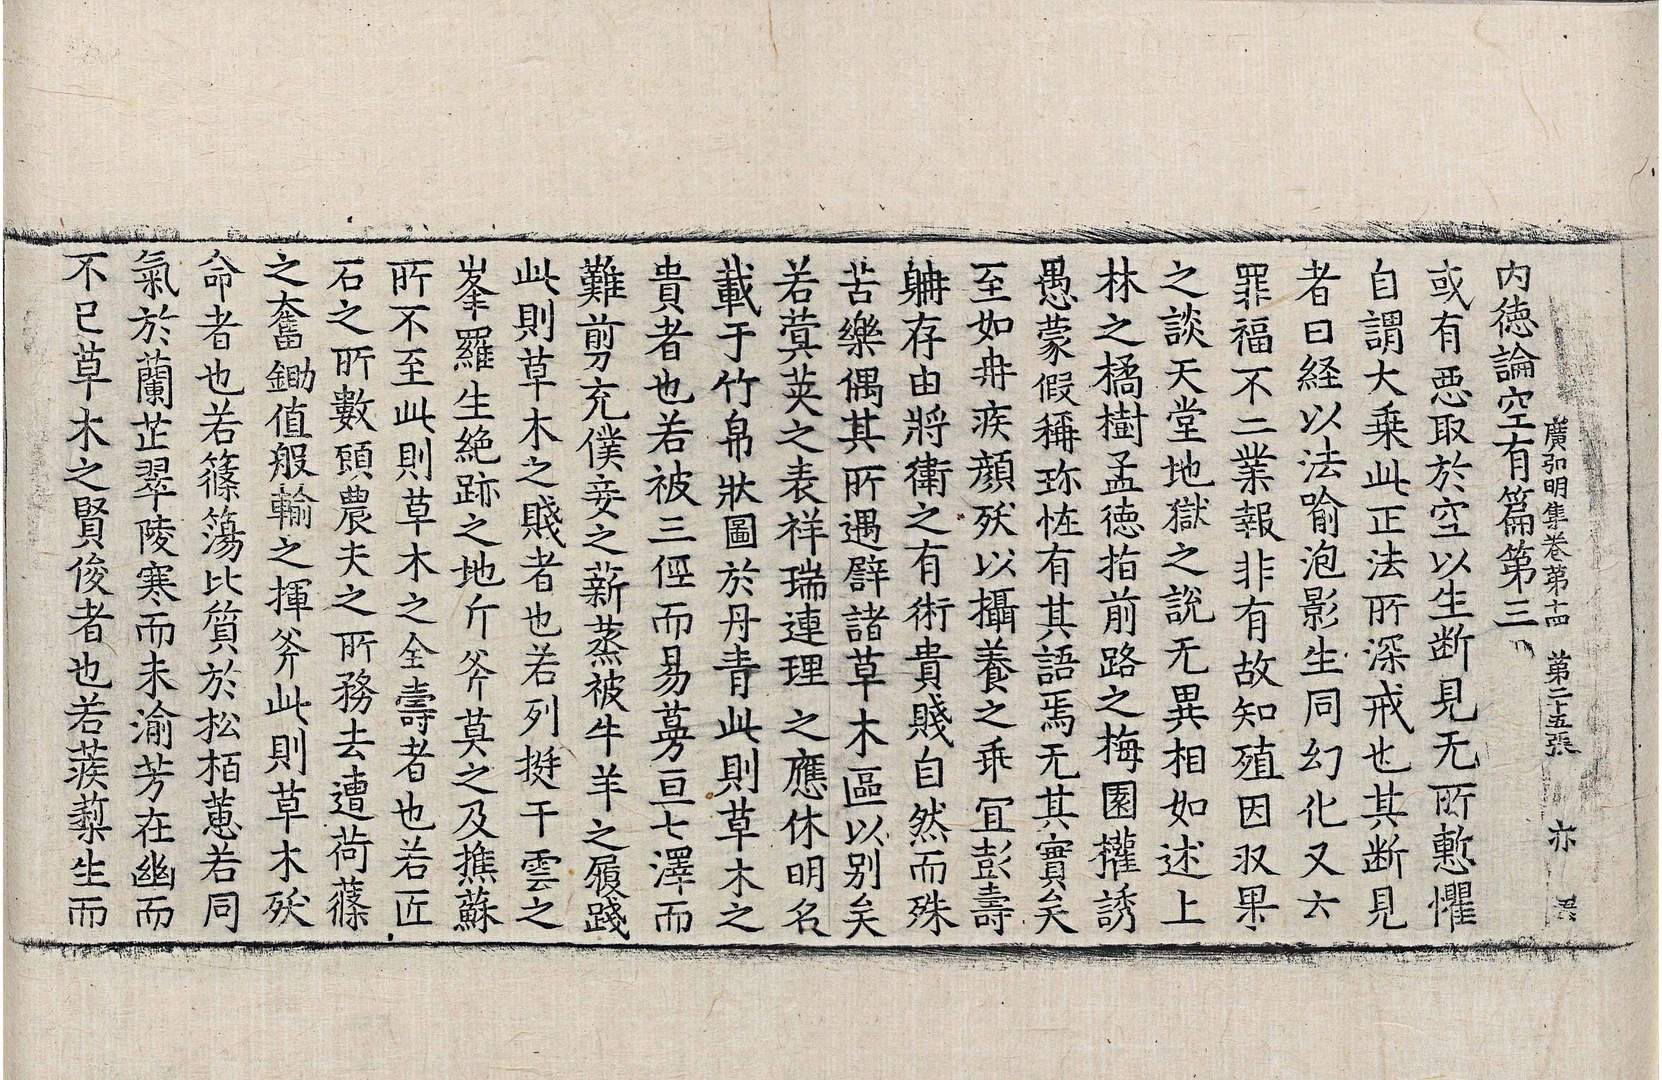 廣弘明集卷第十四 第二十五張 亦
內徳論空有篇第三
或有惡取於空以生断見无所慙懼
自謂大乗此正法所深戒也其断見
者曰経以法喻泡影生同幻化又云
罪福不二業報非有故知殖因収果
之談天堂地獄之說无異相如述上
林之橘樹孟徳指前路之梅園權誘
愚蒙假稱珎恠有其語焉无其實矣
至如冉疾顔殀以攝養之乖冝彭壽
聃存由將衛之有術貴賤自然而殊
苦樂偶其所遇譬諸草木區以别矣
若蓂莢之表祥瑞連理之應休明名
載于竹帛狀圖於丹青此則草木之
貴者也若被三俓而易蔓亘七澤而
難剪充僕妾之薪蒸被牛羊之履踐
此則草木之賤者也若列挺干雲之
峯羅生絶跡之地斤斧莫之及樵蘇
所不至此則草木之全壽者也若匠
石之所數顧農夫之所務去遭荷蓧
之奮鋤值般輸之揮斧此則草木殀
命者也若篠簜比質於松栢蕙若同
氣於蘭芷翠陵寒而未渝芳在幽而
不已草木之賢俊者也若蒺蔾生而